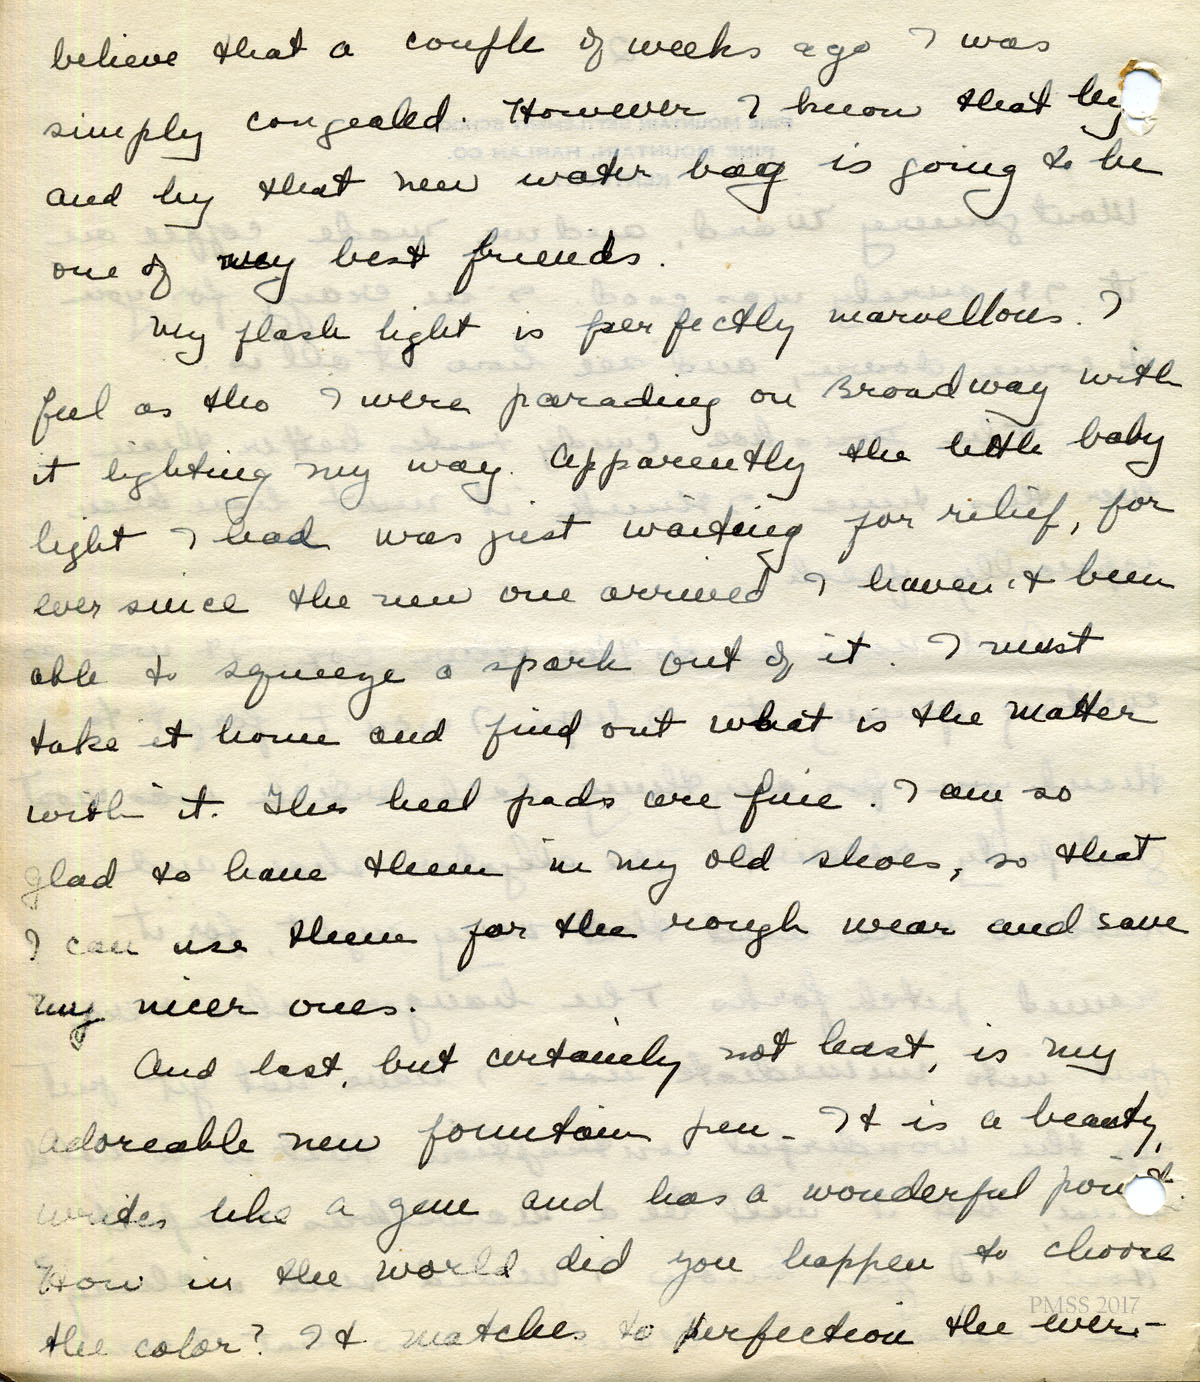 believe that a couple of weeks ago I was
simply congealed. However I know that by
and by that new water bag is going to be
one of my best friends.
My flash light is perfectly marvellous. I
feel as tho I were parading on Broadway with
it lighting my way. Apparently the little baby
light I had was just waiting for relief, for
ever since the new one arrived I haven't been
able to squeeze a spark out of it. I must
take it home and find out what is the matter
with it. The heel pads are fine. I am so
glad to have them in my old shoes, so that
I can use them for the rough wear and save
my nicer ones.
And last, but certainly not least, is my
adoreable new fountain pen. It is a beauty,
writes like a gem and has a wonderful point.
How in the world did you happen to choose
the color? It matches to perfection the ever-
PMSS 2017